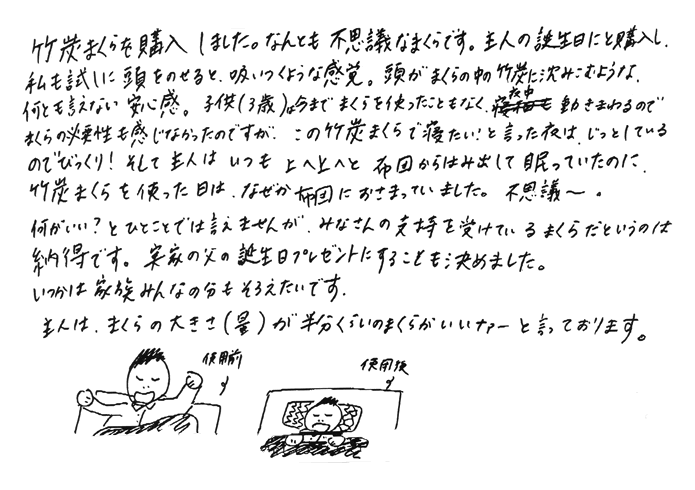 竹炭まくらを購入しました。なんとも不思議なまくらです。主人の誕生日にと購入し、
私も試しに頭をのせると、吸いつくような感覚。頭がまくらの中の竹炭に沈みこむような、
何とも言えない安心感。子供(3歳)は今までまくらを使ったこともなく、夜中動きまわるので
まくらの必要性も感じなかったのですが、この竹炭まくらで寝たい!と言った夜は、じっとしている
のでびっくり!そして主人はいつも上へ上へと布団からはみ出して眠っていたのに、
竹炭まくらを使った日は、なぜか布団におさまっていました。不思議〜。
何がいい?とひとことでは言えませんが、みなさんの支持を受けているまくらだというのは
納得です。実家の父の誕生日プレゼントにすることも決めました。
いつかは家族みんなの分もそろえたいです。
主人は、まくらの大きさ(量)が半分くらいのまくらがいいナァーと言っております。
使用前
使用後